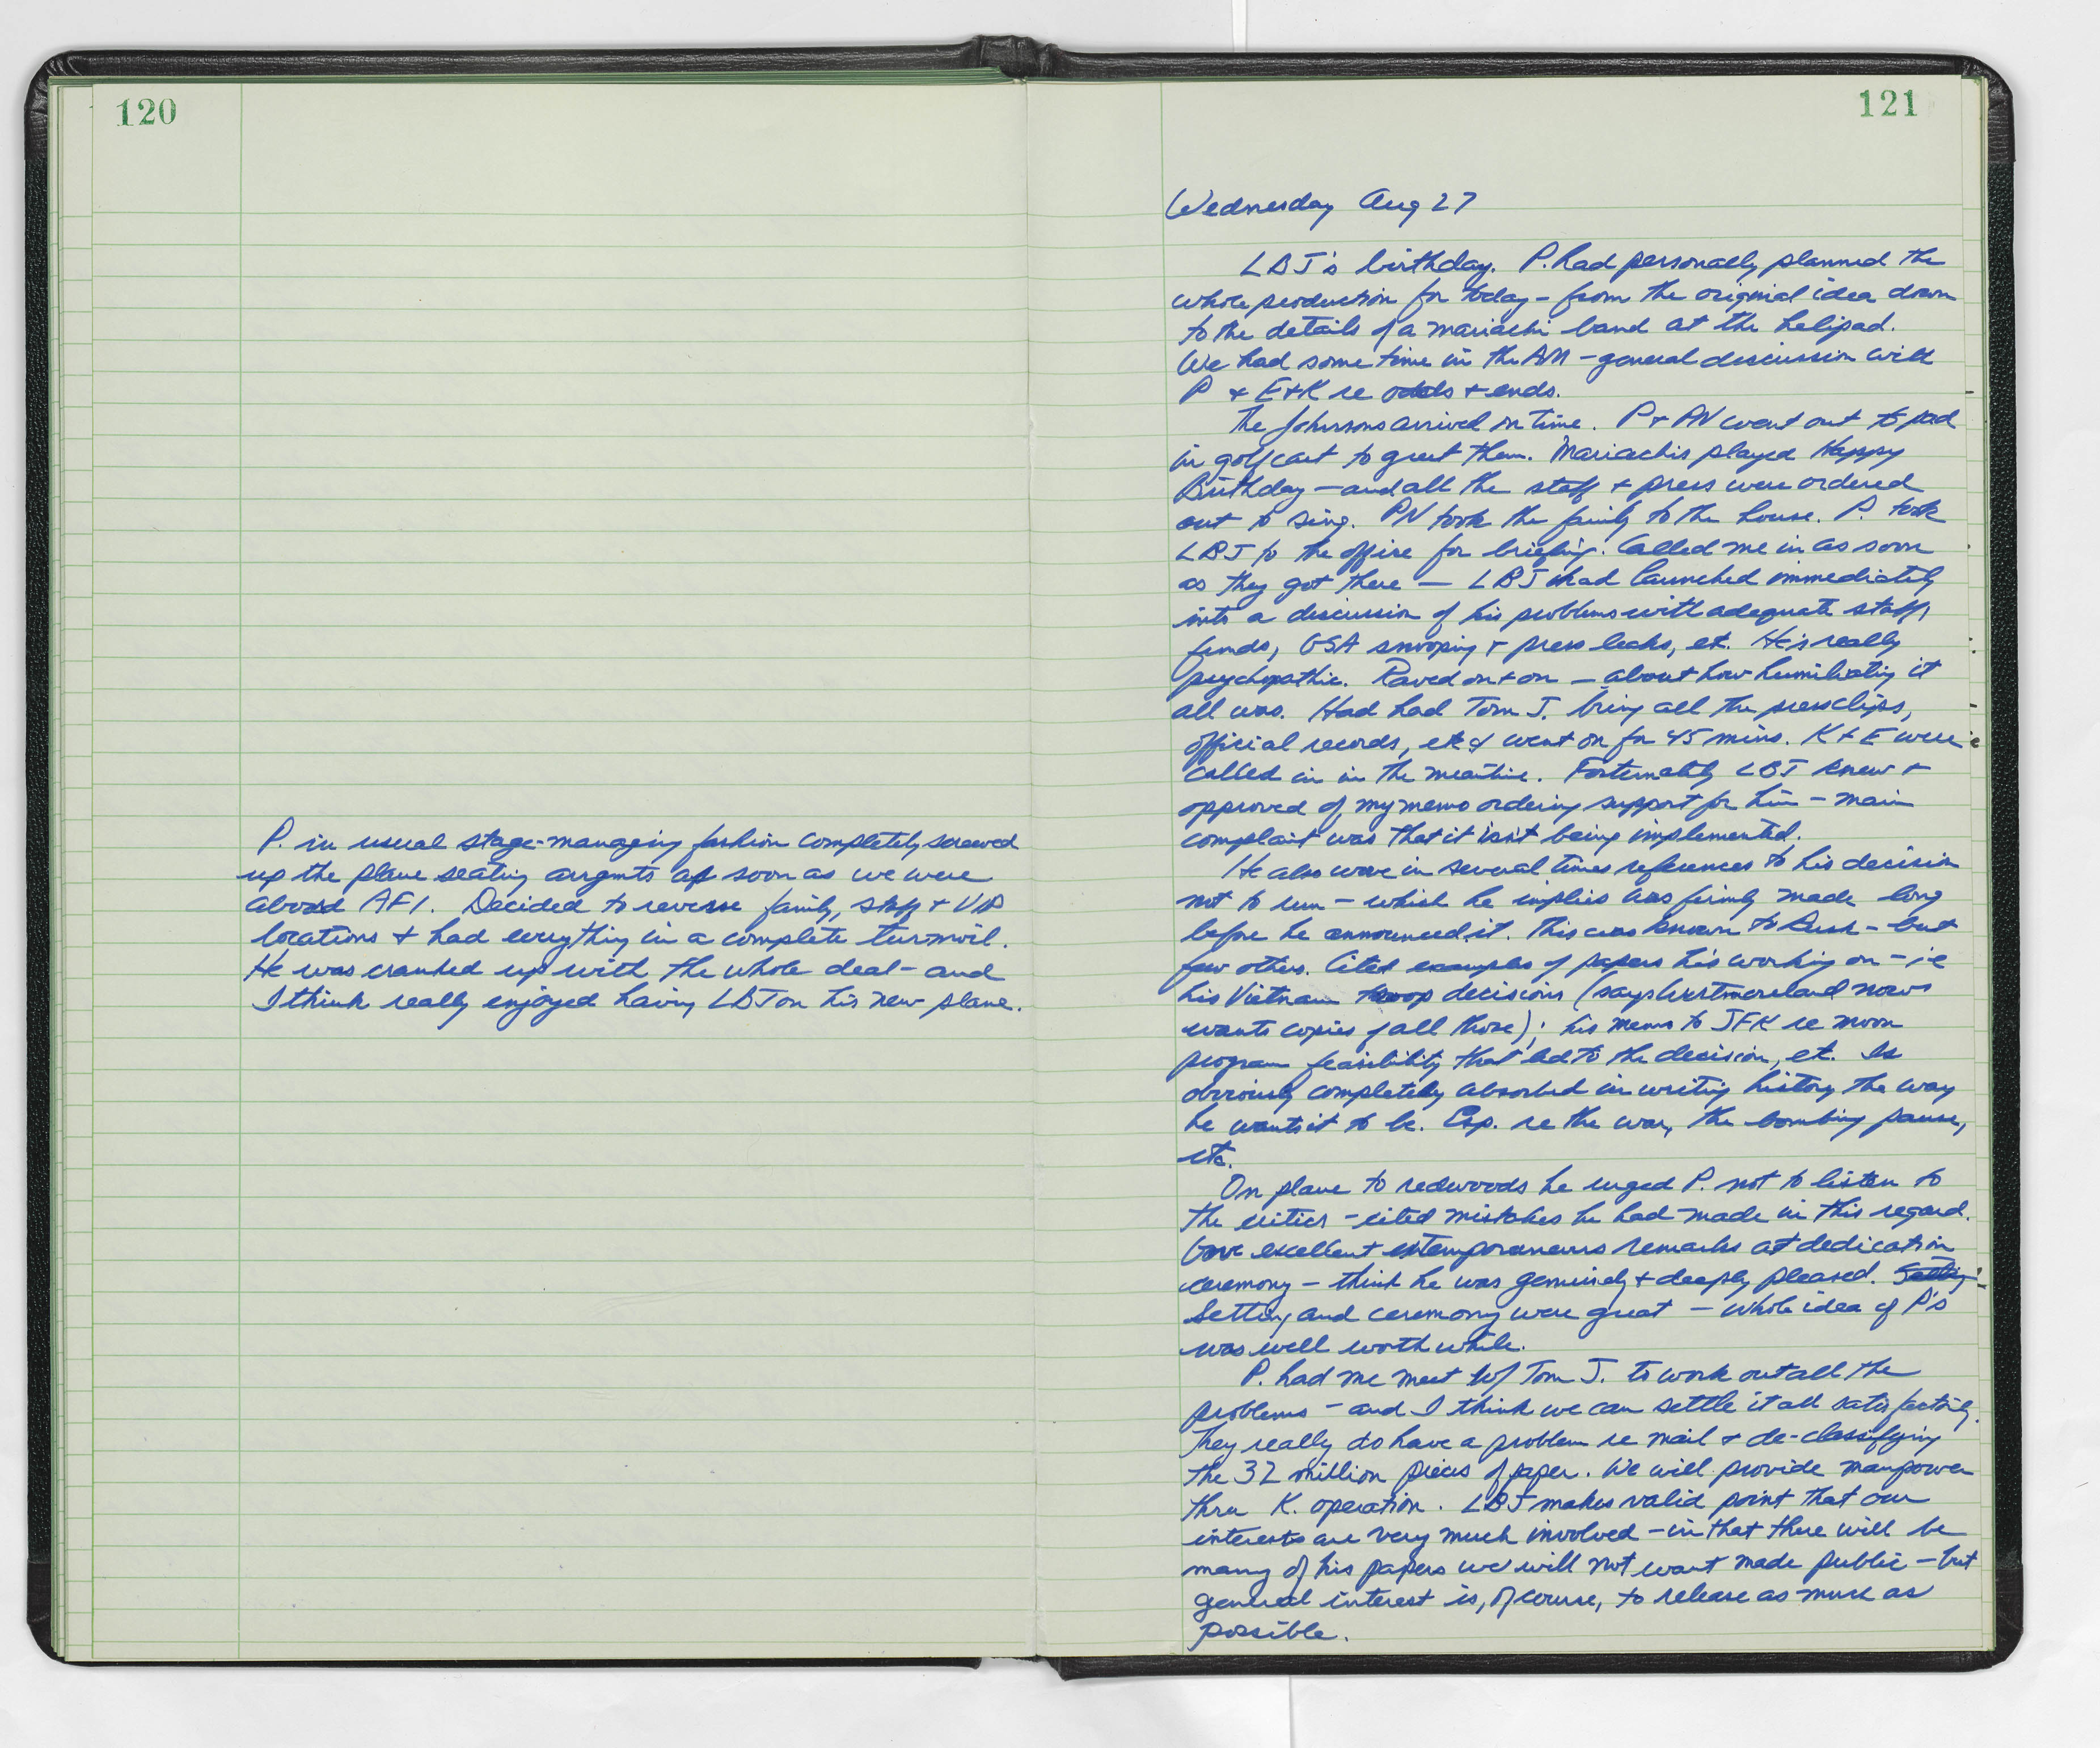 120
P. in usual stage-managing fashion completely screwed
up the plane seating arrgmts as soon as we were
aboard AF1. Decided to reverse family, staff + VIP
locations + had everything in a complete turmoil.
He was cranked up with the whole deal - and
I think really enjoyed having LBJ on his new plane.
121
Wednesday Aug 27
LBJ's birthday. P. had personally planned the
whole production for today - from the original idea down
to the details of a mariachi band at the helipad.
We had some time in the AM - general discussion with
P + E+K re odds + ends.
The Johnsons arrived on time. P + PN went out to pad
in golf cart to greet them. Mariachis played Happy
Birthday - and all the staff + press were ordered
out to sing. PN took the family to the house. P. took
LBJ to the office for briefing. Called me in as soon
as they got there - LBJ had launched immediately
into a discussion of his problems with adequate staff,
funds, GSA snooping + press leaks, et. He's really
psychopathic. Raved on + on - about how humiliating it
all was. Had had Tom J. bring all the press clips,
official records, etc & went on for 45 mins. K + E were
called in in the meantime. Fortunately LBJ knew +
approved of my memo ordering support for him - main
complaint was that it isn't being implemented.
He also wove in several times references to his decision
not to run - which he implies was firmly made long
before he announced it. This was known to Rusk - but
few others. Cited examples of papers he's working on - ie
his Vietnam troop decisions (says Westmoreland now
wants copies of all those); his memo to JFK re moon
program feasibility that led to the decision, et. Is
obviously completely absorbed in writing history the way
he wants it to be. Esp. re the war, the bombing pause,
etc.
On plane to redwoods he urged P. not to listen to
the critics - cited mistakes he had made in this regard.
Gave excellent extemporaneous remarks at dedication
ceremony - think he was genuinely + deeply pleased. Setting
Setting and ceremony were great - whole idea of P's
was well worth while.
P. had me meet w/ Tom J. to work out all the
problems - and I think we can settle it all satisfactorily.
They really do have a problem re mail + de-classifying
the 32 million pieces of paper. We will provide manpower
thru K. operation. LBJ makes valid point that our
interests are very much involved - in that there will be
many of his papers we will not want made public - but
general interest is, of course, to release as much as
possible.